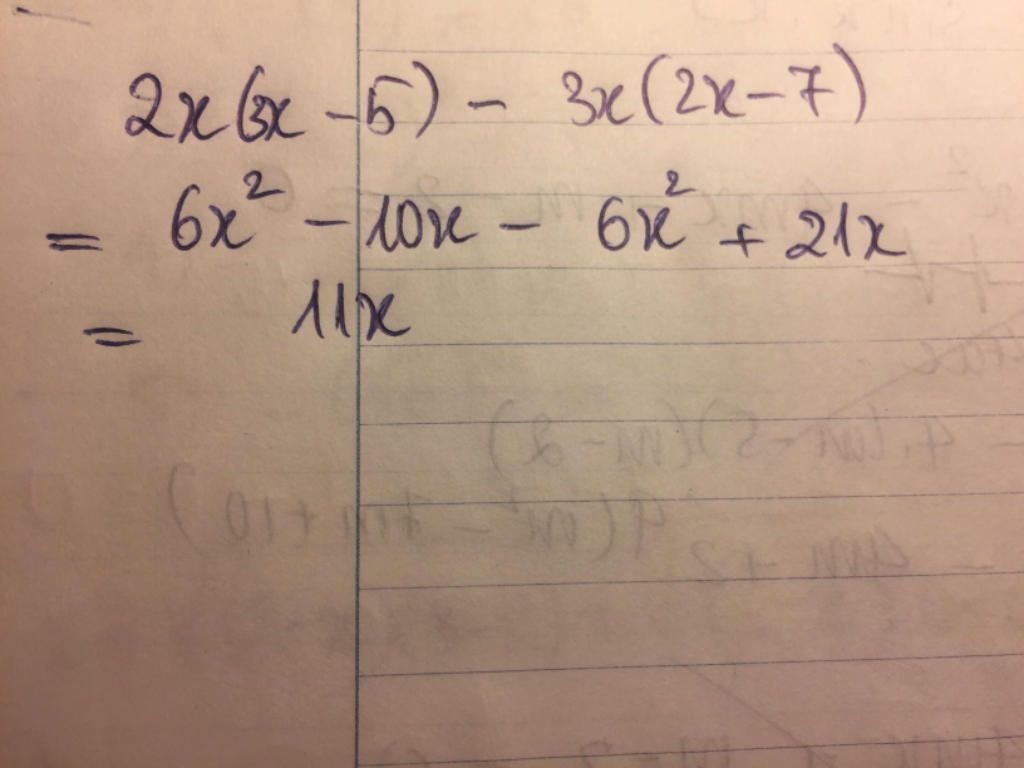 2x(3x - 5) - 3x(2x - 7)
= 6x² - 10x - 6x² + 21x
= 11x